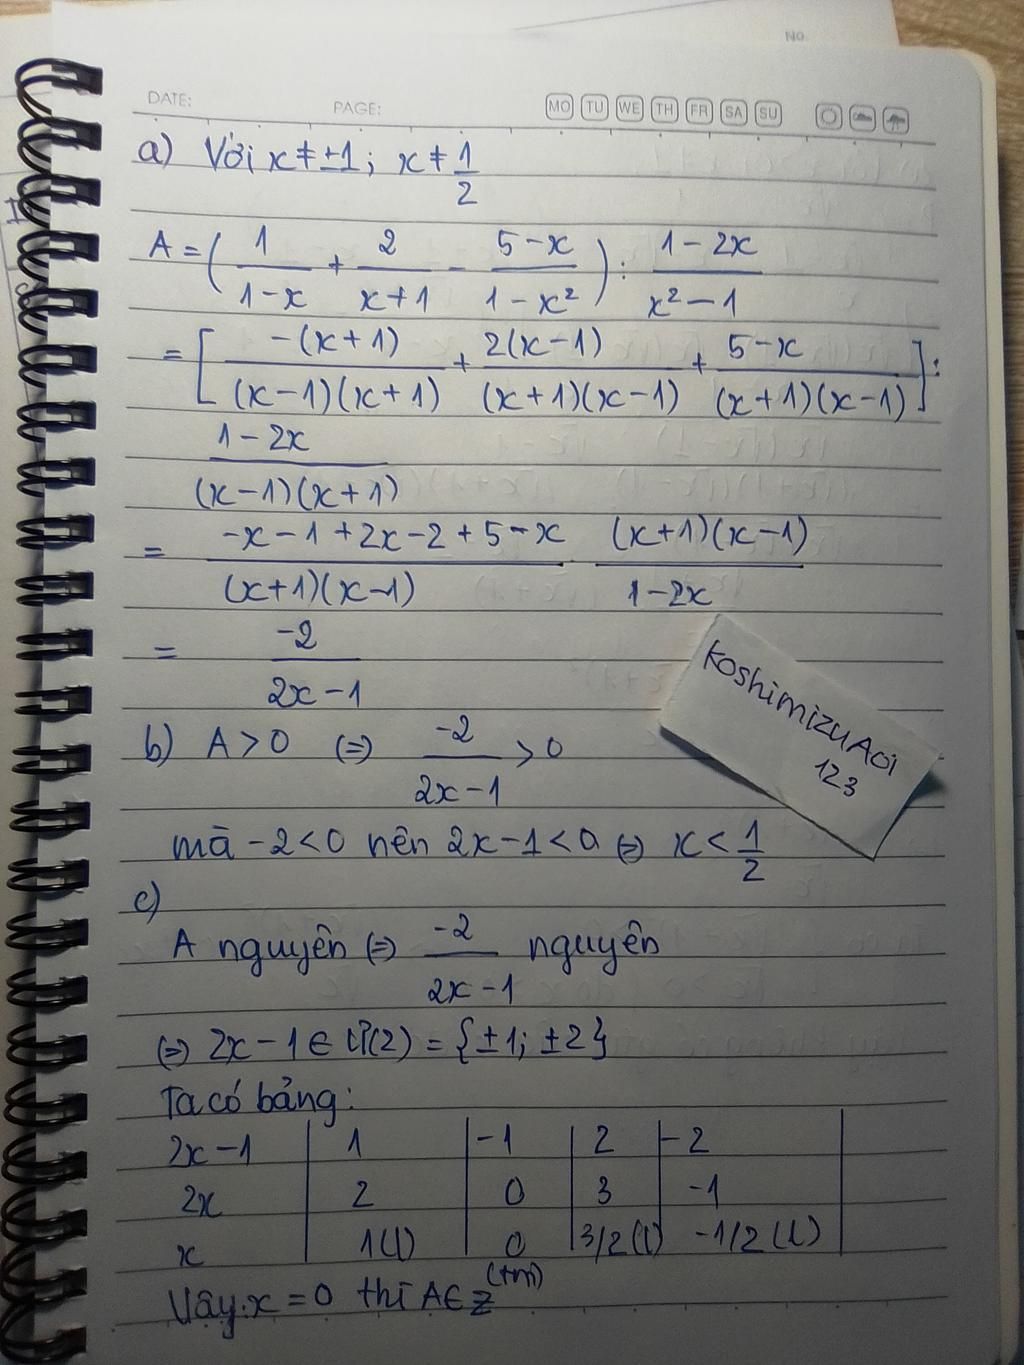 NO.
DATE: PAGE: MO TU WE TH FR SA SU
a) Với x ≠ ±1; x ≠ 1/2
A = ( 1/(1-x) + 2/(x+1) - (5-x)/(1-x²) ) : (1-2x)/(x²-1)
= [ -(x+1)/((x-1)(x+1)) + 2(x-1)/((x+1)(x-1)) + (5-x)/((x+1)(x-1)) ] :
(1-2x)/((x-1)(x+1))
= (-x-1+2x-2+5-x)/((x+1)(x-1)) · ((x+1)(x-1))/(1-2x)
= -2/(2x-1)
KoshimizuAoi
123
b) A > 0 (=) -2/(2x-1) > 0
mà -2 < 0 nên 2x-1 < 0 (=) x < 1/2
c)
A nguyên (=) -2/(2x-1) nguyên
(=) 2x-1 ∈ Ư(2) = {±1; ±2}
Ta có bảng:
2x-1 | 1 | -1 | 2 | -2 |
2x | 2 | 0 | 3 | -1 |
x | 1(l) | 0 (tm) | 3/2 (l) | -1/2 (l) |
Vậy x = 0 thì A ∈ Z